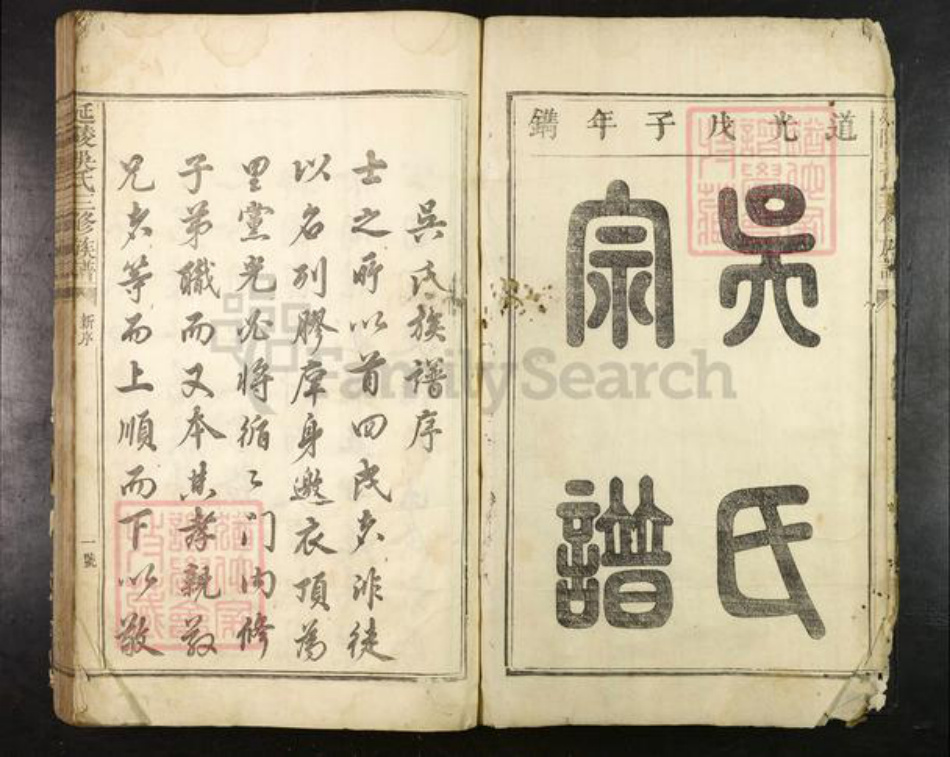 道光戊子年鐫
吳氏
宗譜
吳氏族譜序
士之所以首四民者非徒
以名列膠庠身邀衣頂為
里黨光必將循〻門內修
子弟職而又本其孝親敬
兄者等而上順而下以敬
延陵吳氏三修族譜
新序
一號
FamilySearch